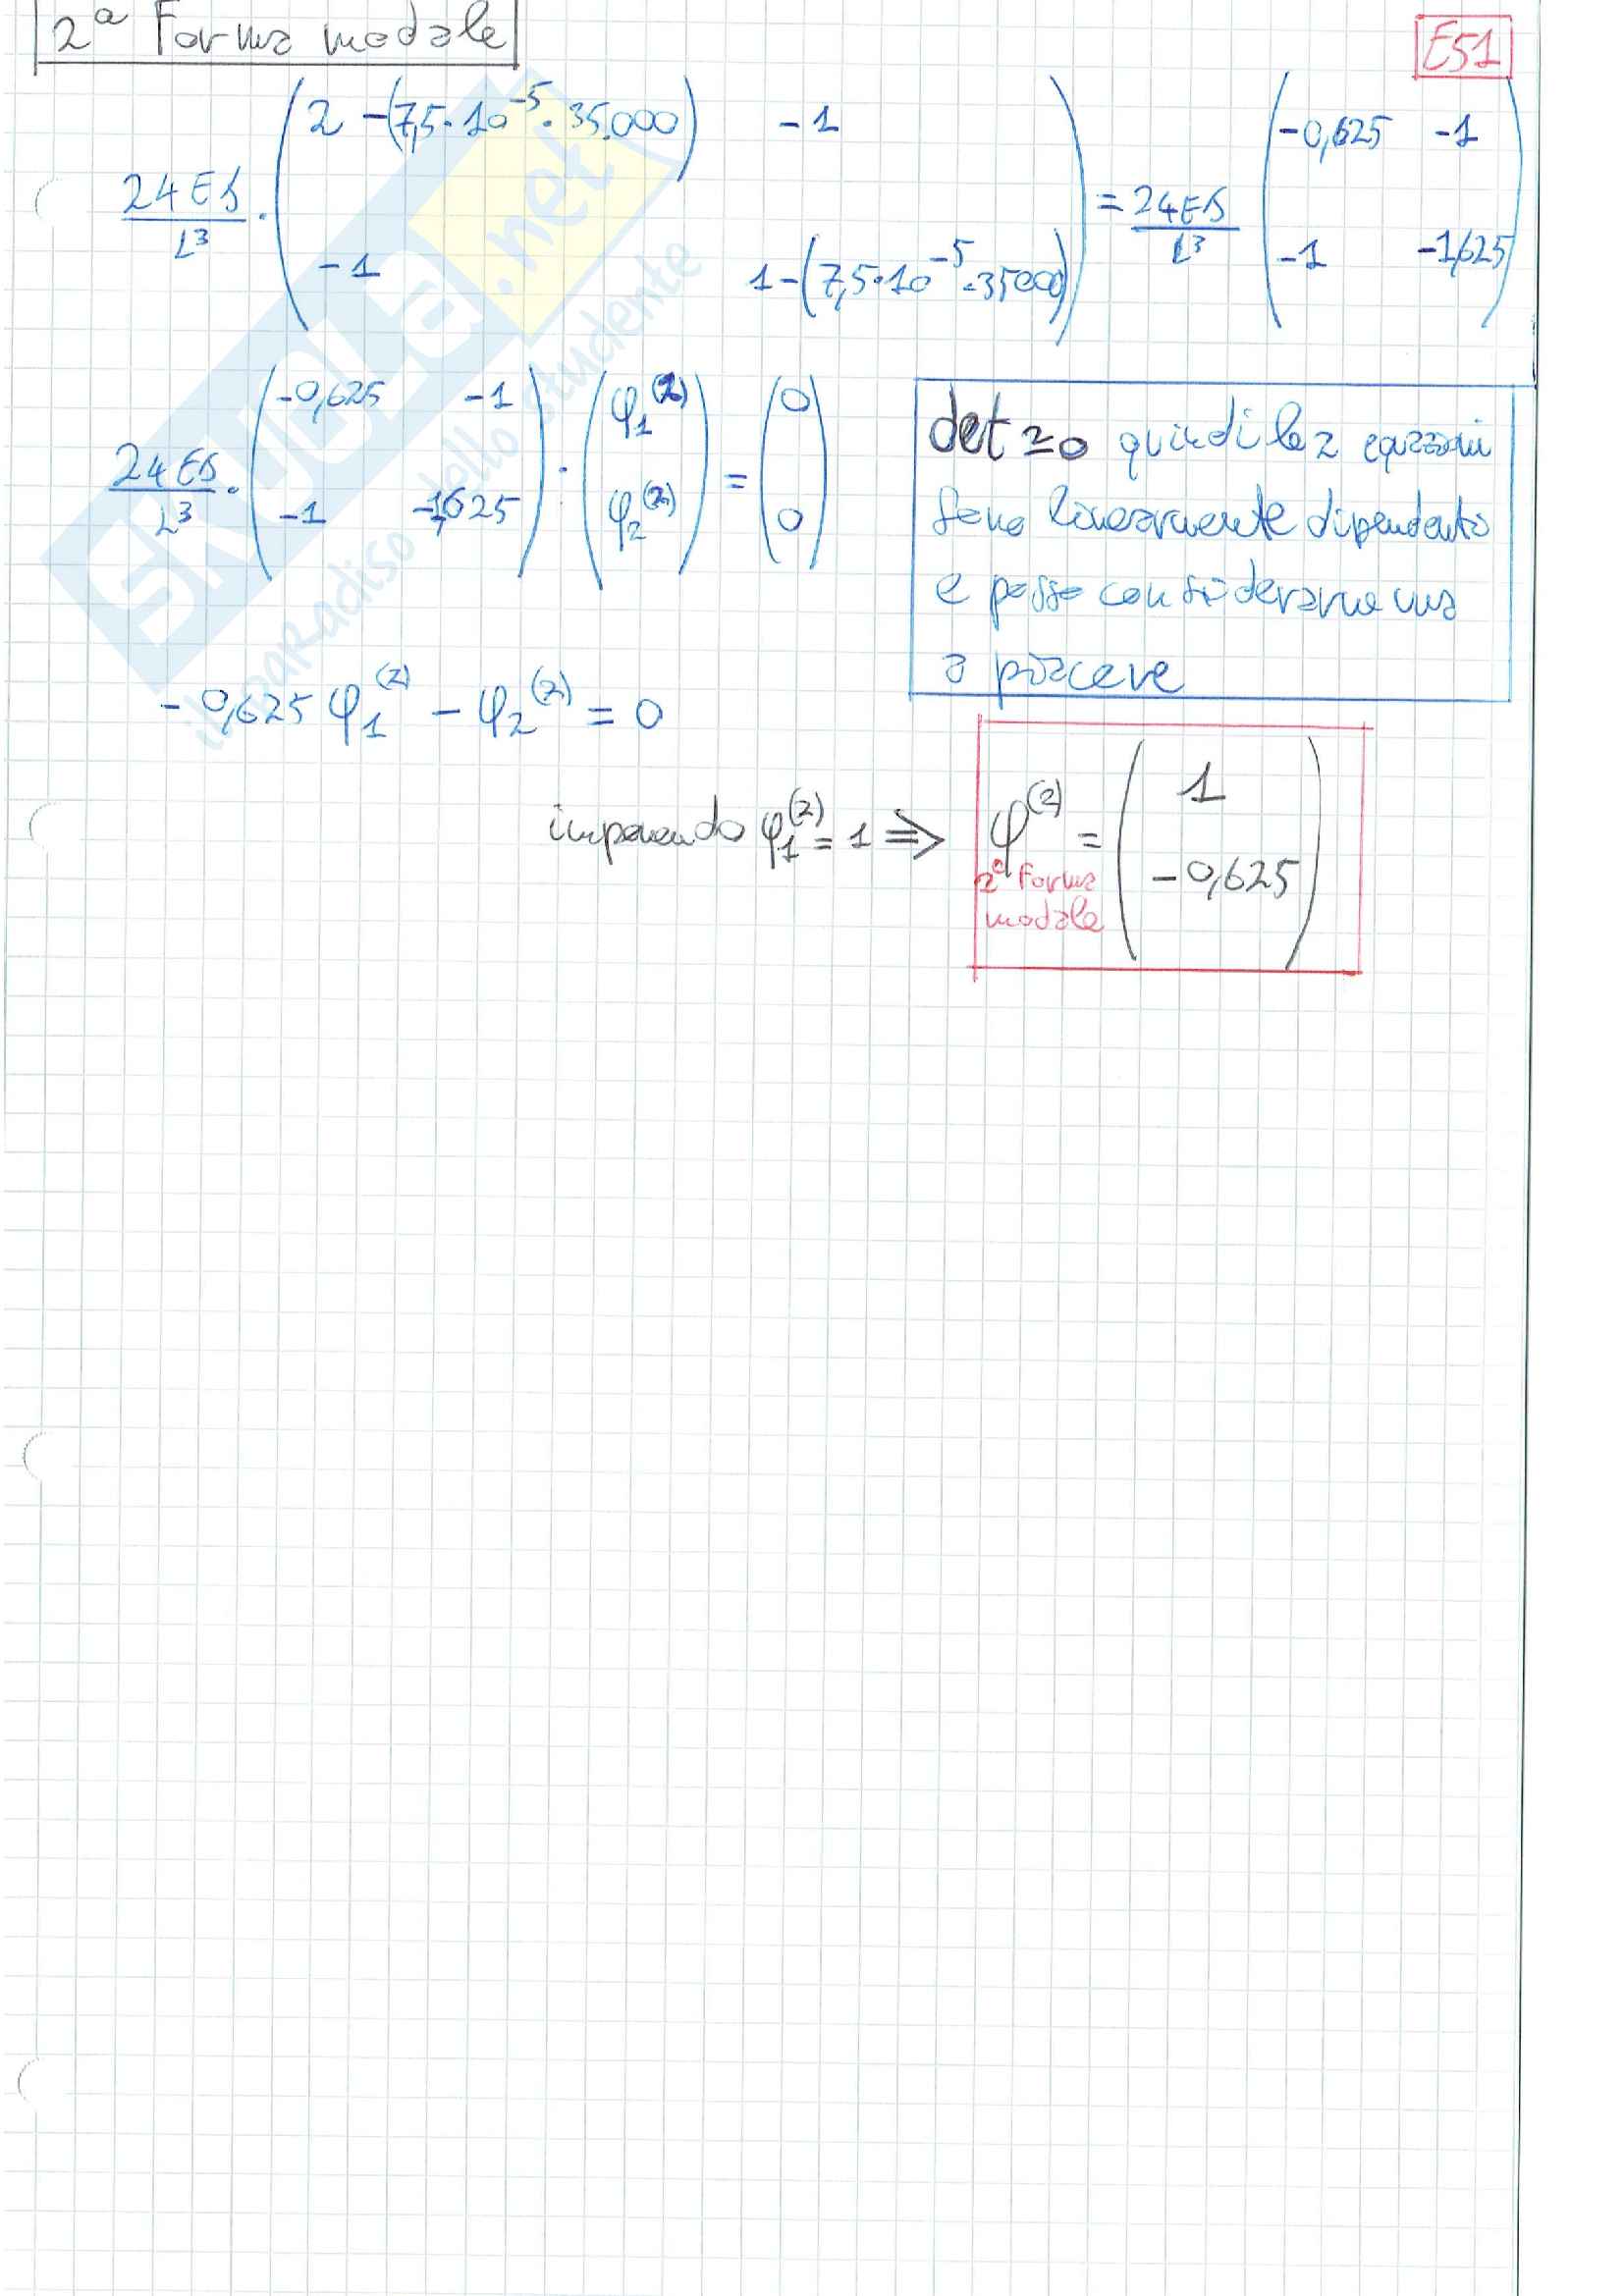 2ª Forma modale
E51
24EJ/L³ · ( 2 - (7,5·10⁻⁵·35.000) -1 ; -1 1-(7,5·10⁻⁵·35000) ) = 24EJ/L³ ( -0,625 -1 ; -1 -1,625 )
24EJ/L³ · ( -0,625 -1 ; -1 -1,625 ) · ( φ₁⁽²⁾ ; φ₂⁽²⁾ ) = ( 0 ; 0 )
det=0 quindi le 2 equazioni
sono linearmente dipendenti
e posso considerarne una
a piacere
-0,625 φ₁⁽²⁾ - φ₂⁽²⁾ = 0
imponendo φ₁⁽²⁾ = 1 ⇒ φ⁽²⁾ = ( 1 ; -0,625 )
2ª Forma
modale
SKUOLA.net
il paradiso dello studente